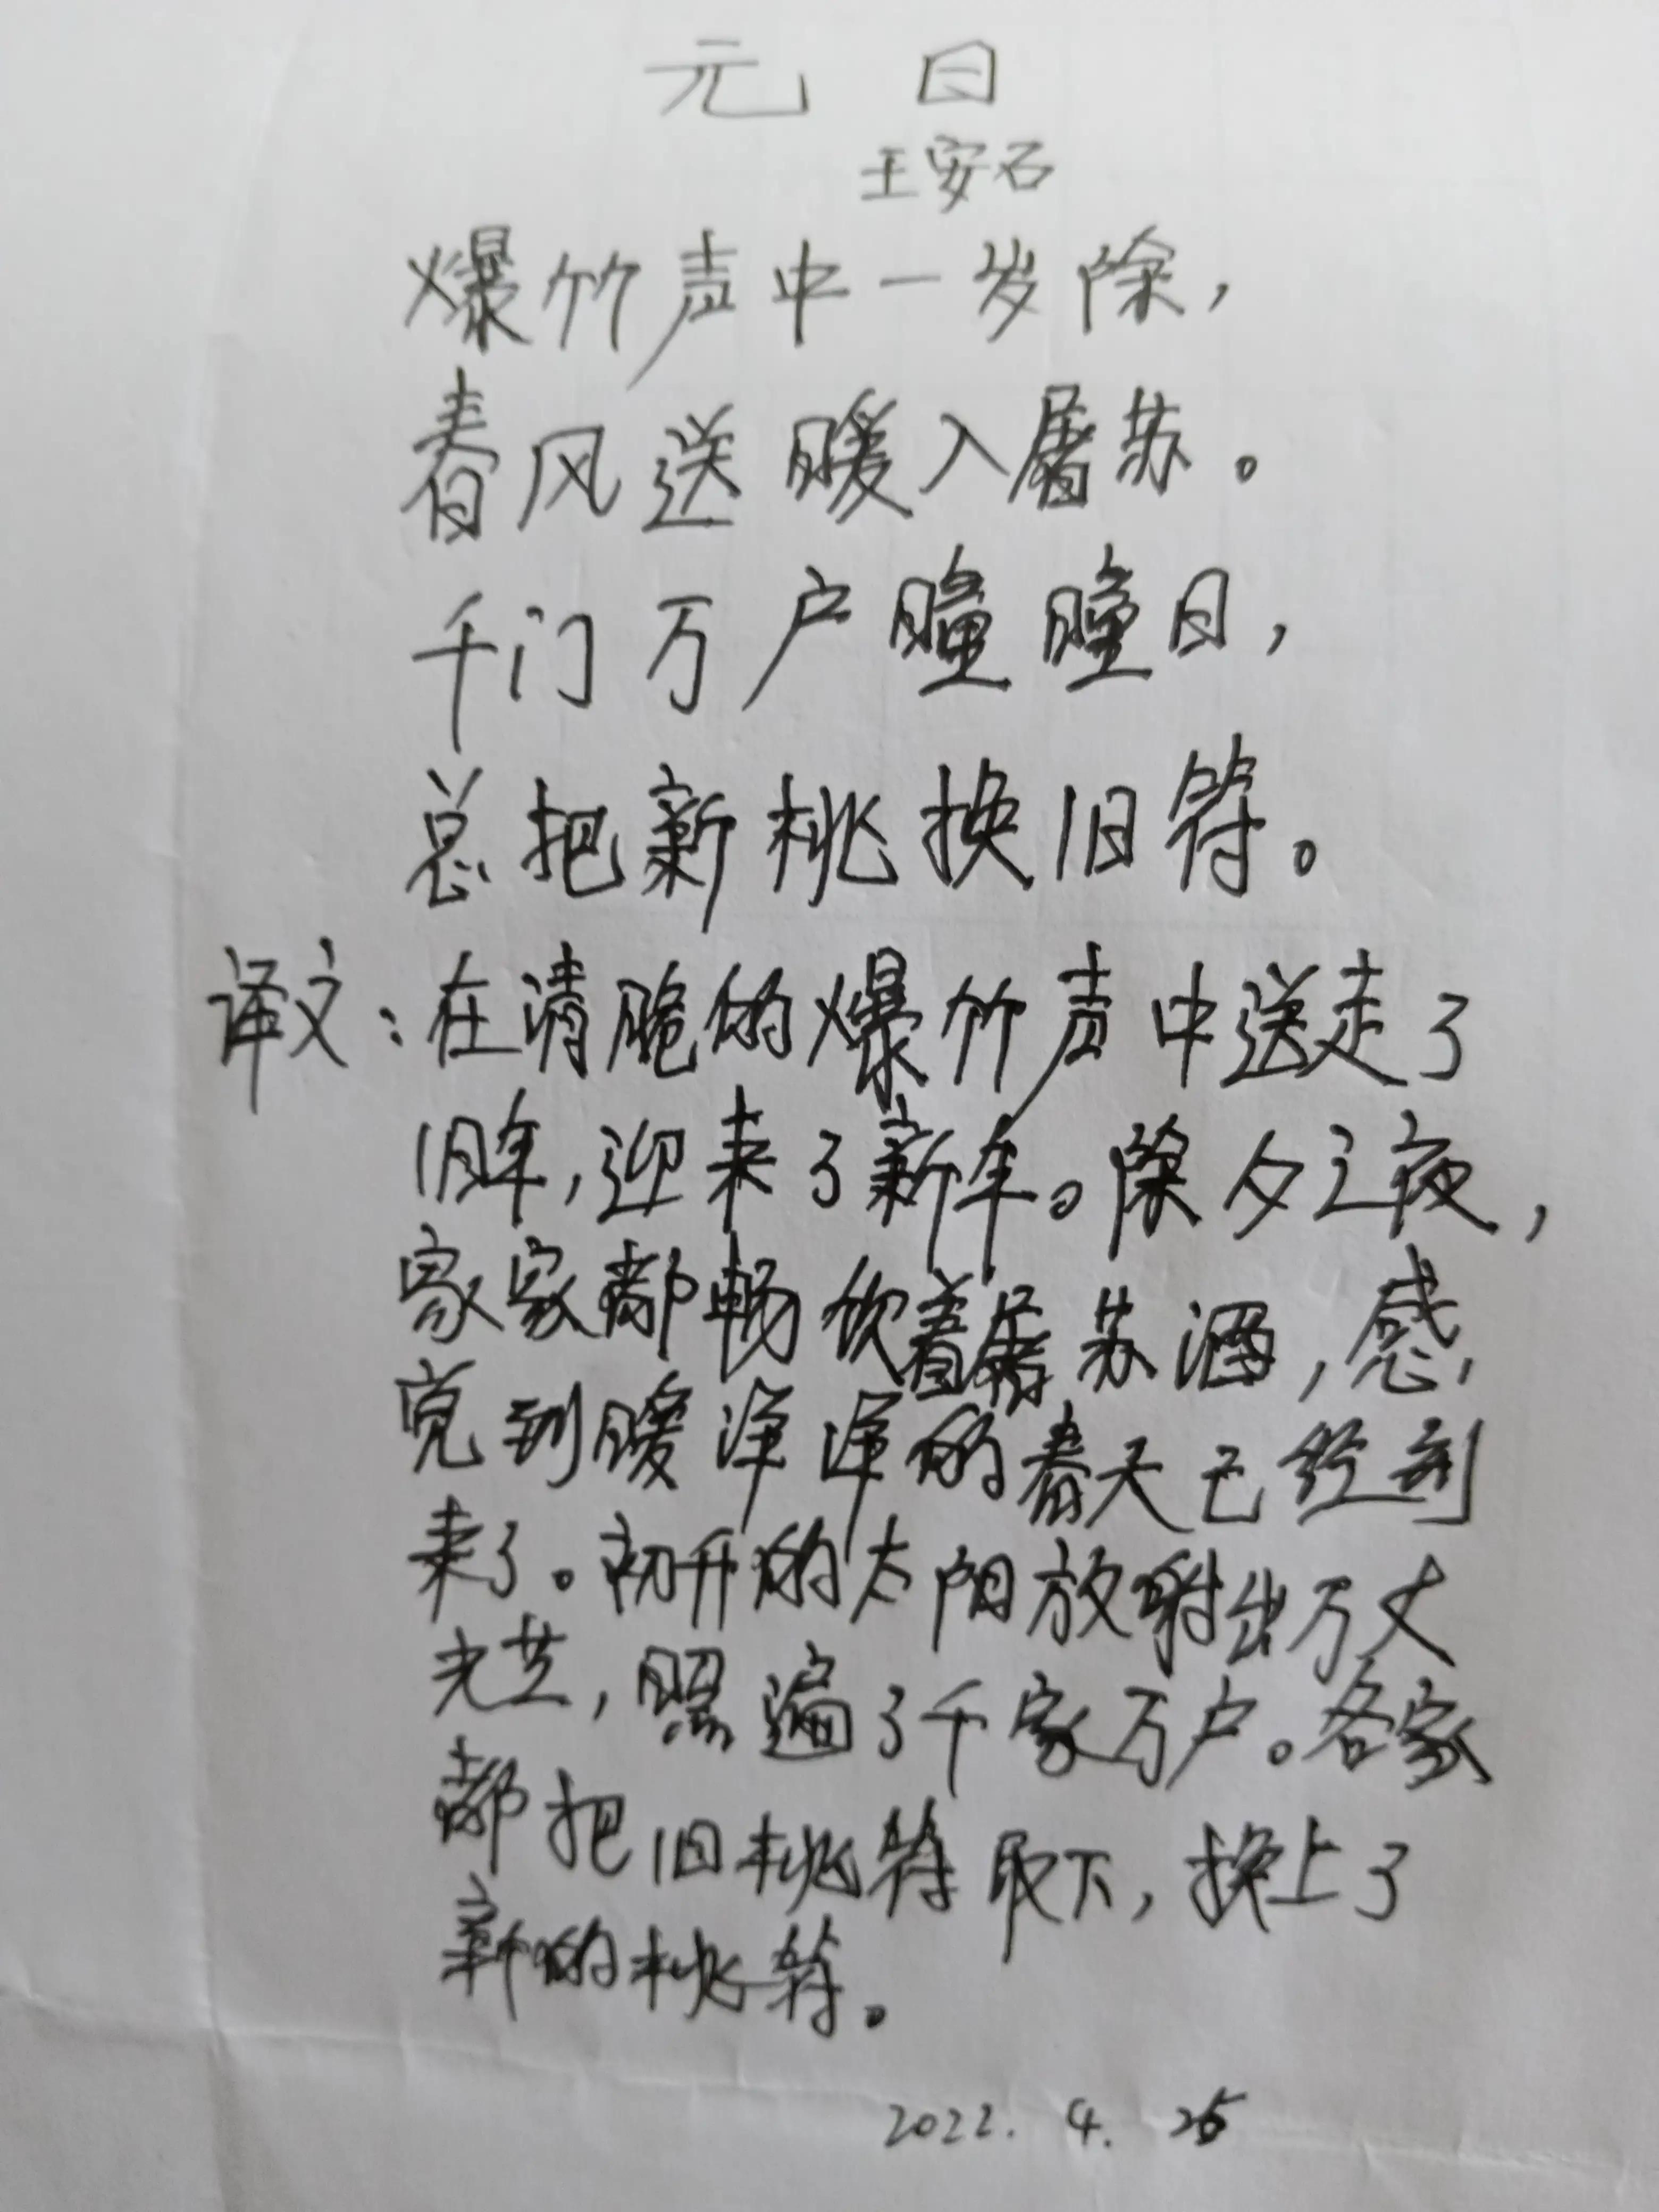 元日
王安石
爆竹声中一岁除，
春风送暖入屠苏。
千门万户曈曈日，
总把新桃换旧符。
译文：在清脆的爆竹声中送走了
旧年，迎来了新年。除夕之夜，
家家都畅饮着屠苏酒，感
觉到暖洋洋的春天已经到
来了。初升的太阳放射出万丈
光芒，照遍了千家万户。各家
都把旧桃符取下，换上了
新的桃符。
2022. 4.